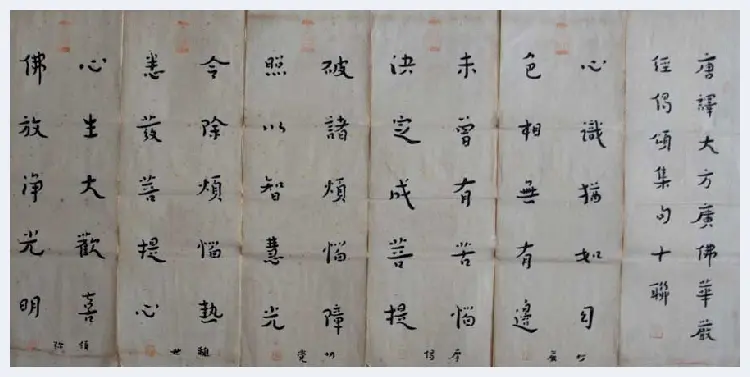 唐譯大方廣佛華嚴
經偈頌集句十聯
心識猶如幻
色相無有邊
未曾有苦惱
決定成菩提
破諸煩惱障
照以智慧光
令除煩惱熱
悉發菩提心
心生大歡喜
佛放淨光明